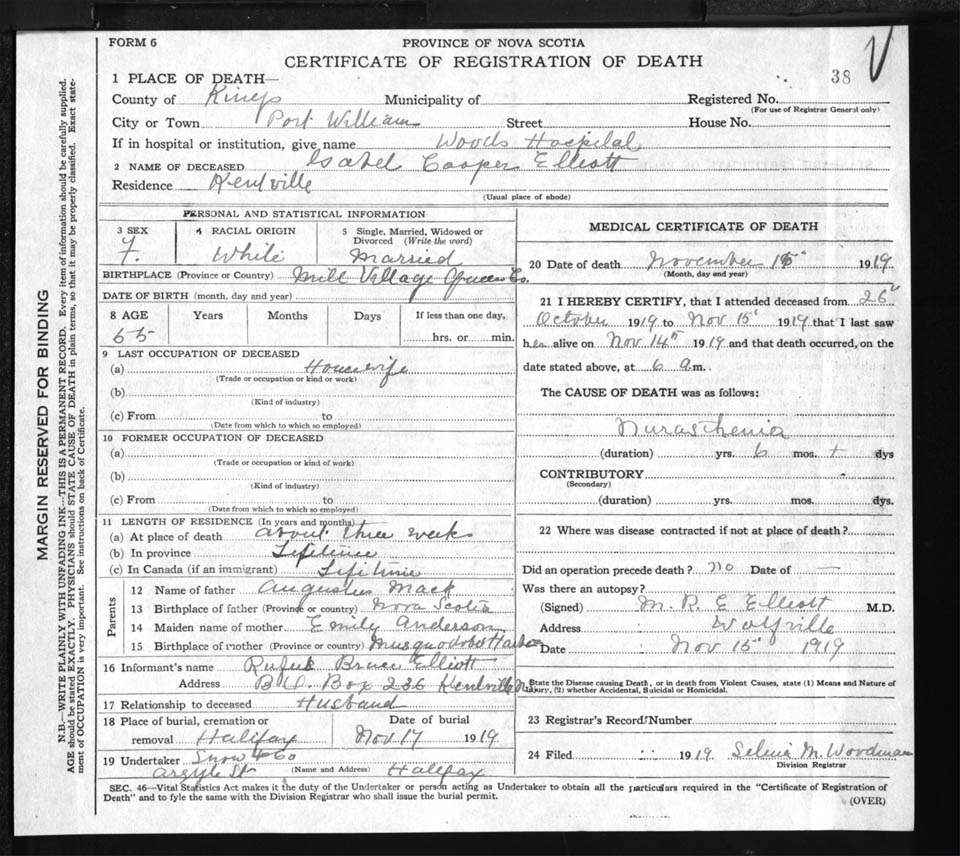 FORM 6
PROVINCE OF NOVA SCOTIA
CERTIFICATE OF REGISTRATION OF DEATH
38
1 PLACE OF DEATH—
County of Kings Municipality of Registered No.
(For use of Registrar General only)
City or Town Port William Street House No.
If in hospital or institution, give name Woods Hospital
2 NAME OF DECEASED Isabel Cooper Elliott
Residence Kentville
(Usual place of abode)
PERSONAL AND STATISTICAL INFORMATION
3 SEX 4 RACIAL ORIGIN 5 Single, Married, Widowed or Divorced (Write the word)
F. White Married
BIRTHPLACE (Province or Country) Mill Village Queens Co.
DATE OF BIRTH (month, day and year)
8 AGE Years Months Days If less than one day,
65 hrs. or min.
9 LAST OCCUPATION OF DECEASED
(a) Housewife
(Trade or occupation or kind or work)
(b)
(Kind of industry)
(c) From to
(Date from which to which so employed)
10 FORMER OCCUPATION OF DECEASED
(a)
(Trade or occupation or kind of work)
(b)
(Kind of industry)
(c) From to
(Date from which to which so employed)
11 LENGTH OF RESIDENCE (In years and months)
(a) At place of death about three weeks
(b) In province Lifetime
(c) In Canada (if an immigrant) Lifetime
Parents
12 Name of father Augustus Mack
13 Birthplace of father (Province or country) Nova Scotia
14 Maiden name of mother Emily Anderson
15 Birthplace of mother (Province or country) Musquodobo Harbor
16 Informant's name Rufus Bruce Elliott
Address B.O. Box 236 Kentville N
17 Relationship to deceased Husband
18 Place of burial, cremation or Date of burial
removal Halifax Nov. 17 1919
19 Undertaker Snow &Co
Argyle St (Name and Address) Halifax
MEDICAL CERTIFICATE OF DEATH
20 Date of death November 15 1919
(Month, day and year)
21 I HEREBY CERTIFY, that I attended deceased from 26
October 1919 to Nov 15 1919 that I last saw
her alive on Nov 14 1919 and that death occurred, on the
date stated above, at 6 a.m.
The CAUSE OF DEATH was as follows:
Nurasthenia
(duration) yrs. 6 mos. + dys
CONTRIBUTORY
(Secondary)
(duration) yrs. mos. dys.
22 Where was disease contracted if not at place of death?
Did an operation precede death? no Date of —
Was there an autopsy?
(Signed) M. R. E Elliott M.D.
Address Wolfville
Date Nov 15 1919
State the Disease causing Death, or in death from Violent Causes, state (1) Means and Nature of
Injury, (2) whether Accidental, Suicidal or Homicidal.
23 Registrar's Record/Number
24 Filed 1919 Selina M. Woodman
Division Registrar
SEC. 46—Vital Statistics Act makes it the duty of the Undertaker or person acting as Undertaker to obtain all the particulars required in the "Certificate of Registration of
Death" and to fyle the same with the Division Registrar who shall issue the burial permit.
(OVER)
MARGIN RESERVED FOR BINDING
N.B.—WRITE PLAINLY WITH UNFADING INK—THIS IS A PERMANENT RECORD. Every item of information should be carefully supplied.
AGE should be stated EXACTLY. PHYSICIANS should STATE CAUSE OF DEATH in plain terms, so that it may be properly classified. Exact state-
ment of OCCUPATION is very important. See instructions on back of Certificate.